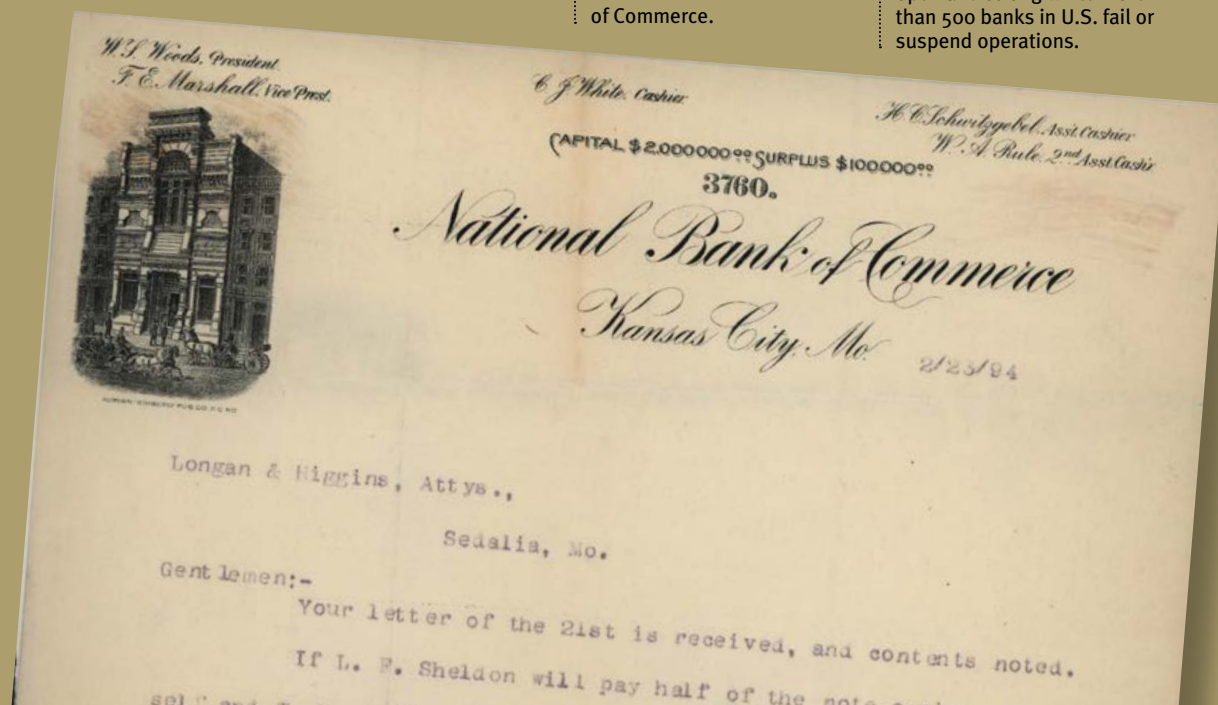 of Commerce.
than 500 banks in U.S. fail or
suspend operations.
W. S. Woods, President.
F. E. Marshall, Vice Prest.
C. J. White, Cashier
H. C. Schwitzgebel, Asst. Cashier
W. A. Rule, 2nd Asst. Cash'r
CAPITAL $2.000000.00 SURPLUS $100.000.00
3760.
National Bank of Commerce
Kansas City, Mo.
2/23/94
Longan & Higgins, Attys.,
Sedalia, Mo.
Gentlemen:-
Your letter of the 21st is received, and contents noted.
If L. F. Sheldon will pay half of the note